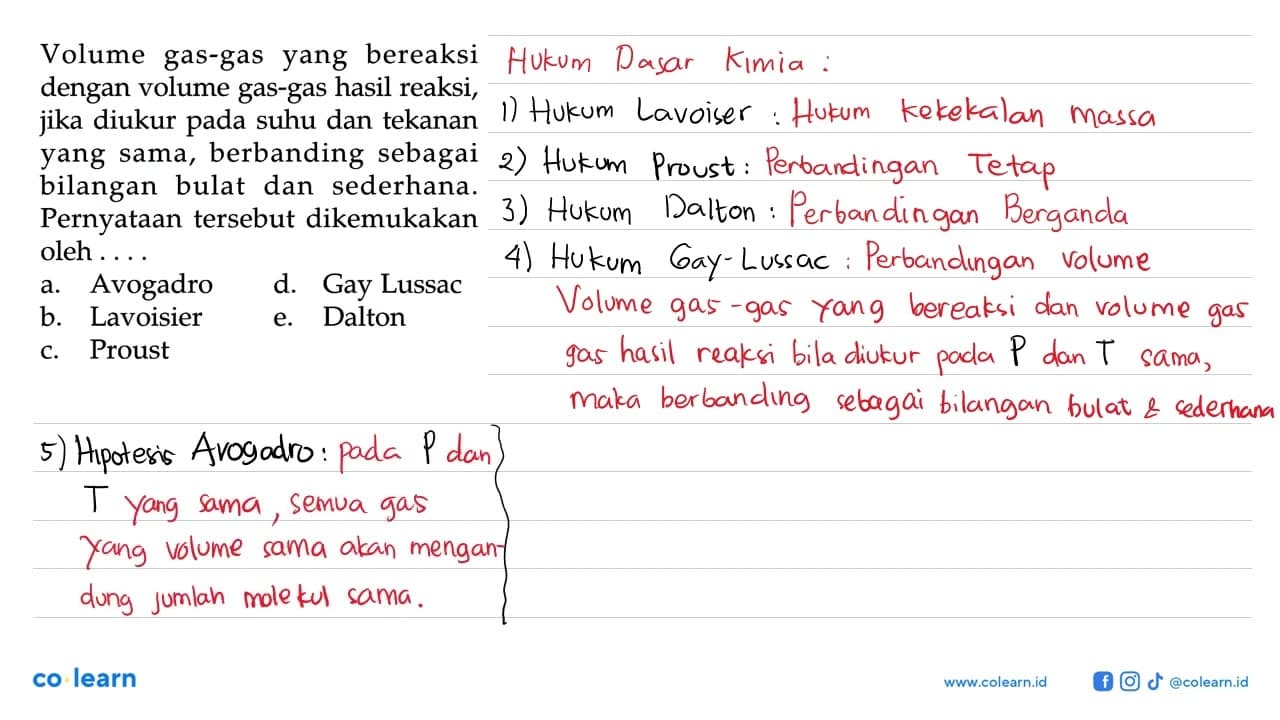 Volume gas-gas yang bereaksi
dengan volume gas-gas hasil reaksi,
jika diukur pada suhu dan tekanan
yang sama, berbanding sebagai
bilangan bulat dan sederhana.
Pernyataan tersebut dikemukakan
oleh . . . .
a. Avogadro d. Gay Lussac
b. Lavoisier e. Dalton
c. Proust
Hukum Dasar Kimia :
1) Hukum Lavoiser : Hukum kekekalan massa
2) Hukum Proust : Perbandingan Tetap
3) Hukum Dalton : Perbandingan Berganda
4) Hukum Gay-Lussac : Perbandingan volume
Volume gas-gas yang bereaksi dan volume gas
gas hasil reaksi bila diukur pada P dan T sama,
maka berbanding sebagai bilangan bulat & sederhana
5) Hipotesis Avogadro : pada P dan
T yang sama, semua gas
yang volume sama akan mengan-
dung jumlah molekul sama.
co learn
www.colearn.id @colearn.id